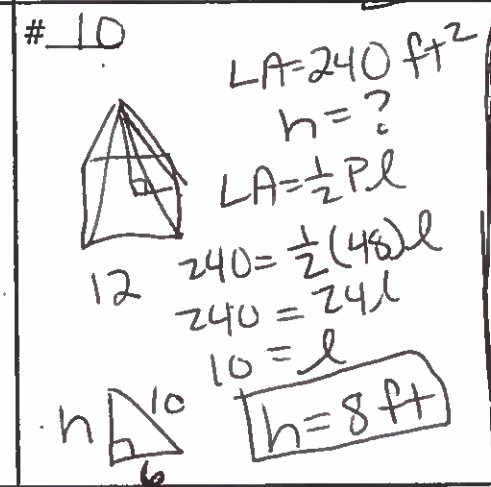 # 10
LA=240 ft²
h=?
LA=½Pl
12
240=½(48)l
240=24l
10=l
h
10
6
h=8ft